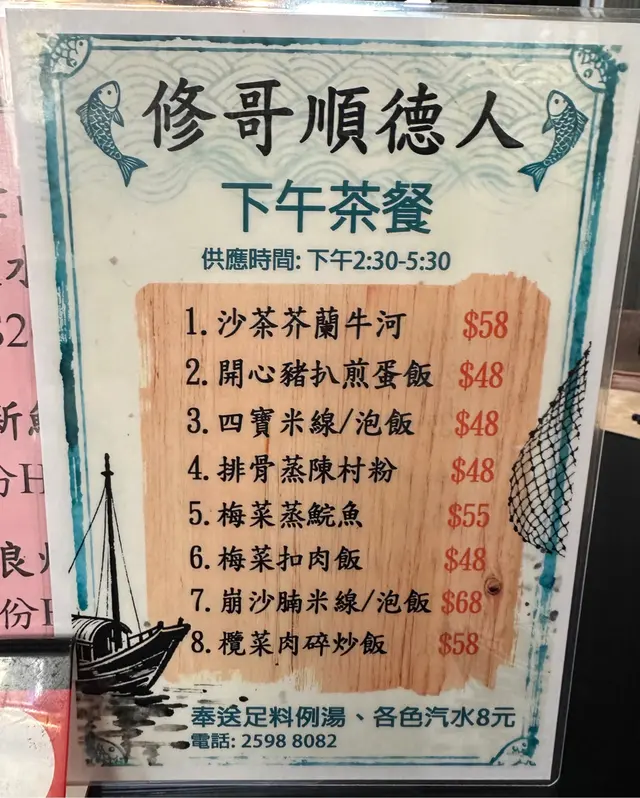 修哥順德人
下午茶餐
供應時間: 下午2:30-5:30
1. 沙茶芥蘭牛河 $58
2. 開心豬扒煎蛋飯 $48
3. 四寶米線/泡飯 $48
4. 排骨蒸陳村粉 $48
5. 梅菜蒸鯇魚 $55
6. 梅菜扣肉飯 $48
7. 崩沙腩米線/泡飯 $68
8. 欖菜肉碎炒飯 $58
奉送足料例湯、各色汽水8元
電話: 2598 8082
水
新
份